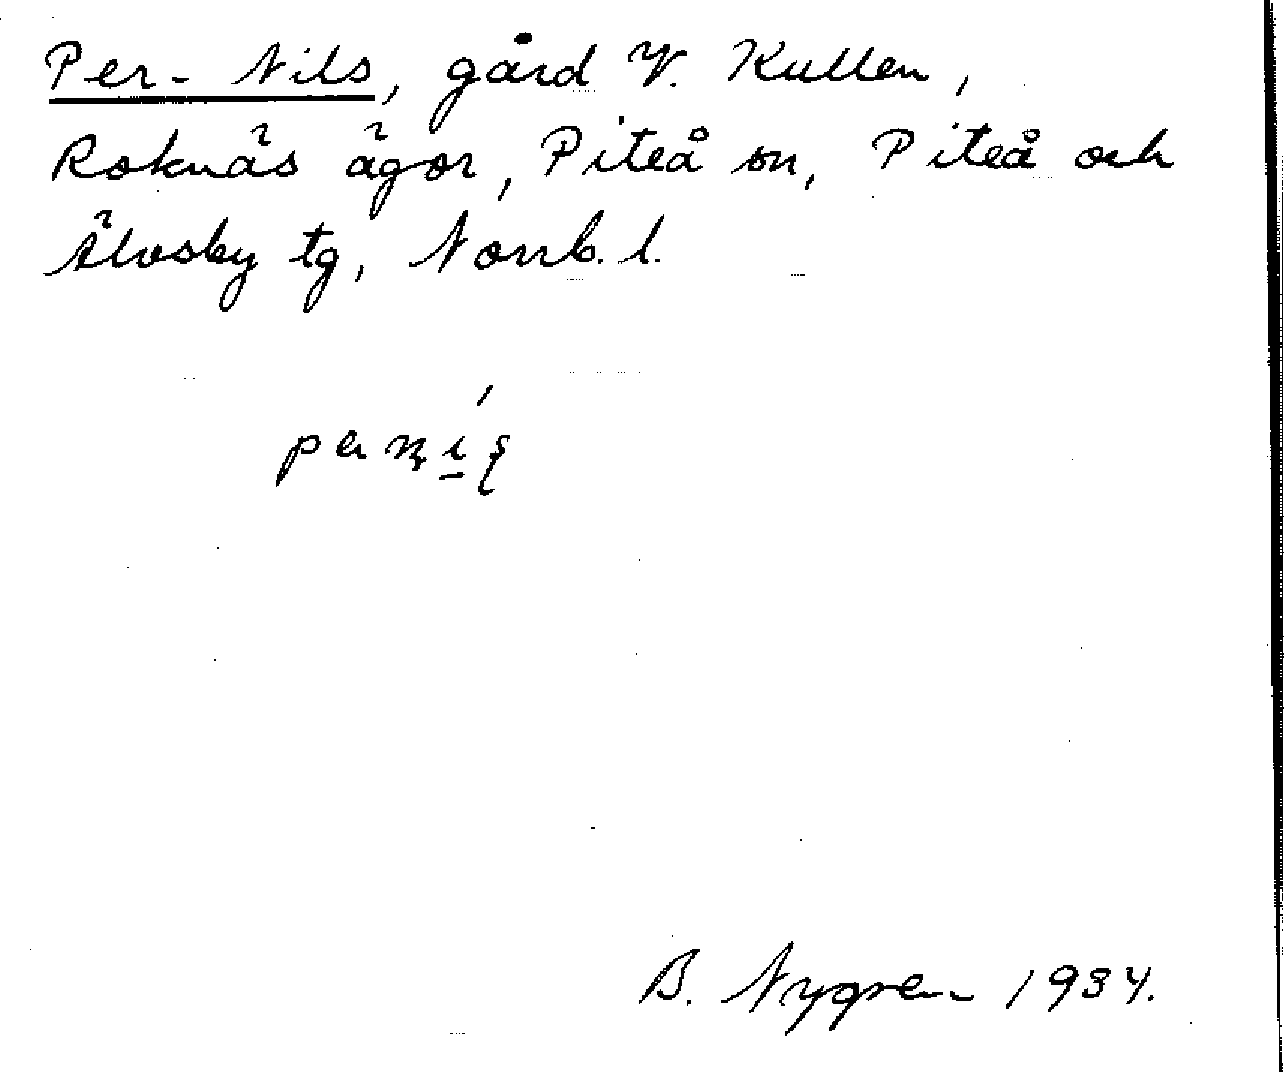 Per-Nils, gård V. Kullen,
Roknäs ägor, Piteå sn, Piteå och
Älvsby tg, Norrb. l.
B. Nygren 1934.